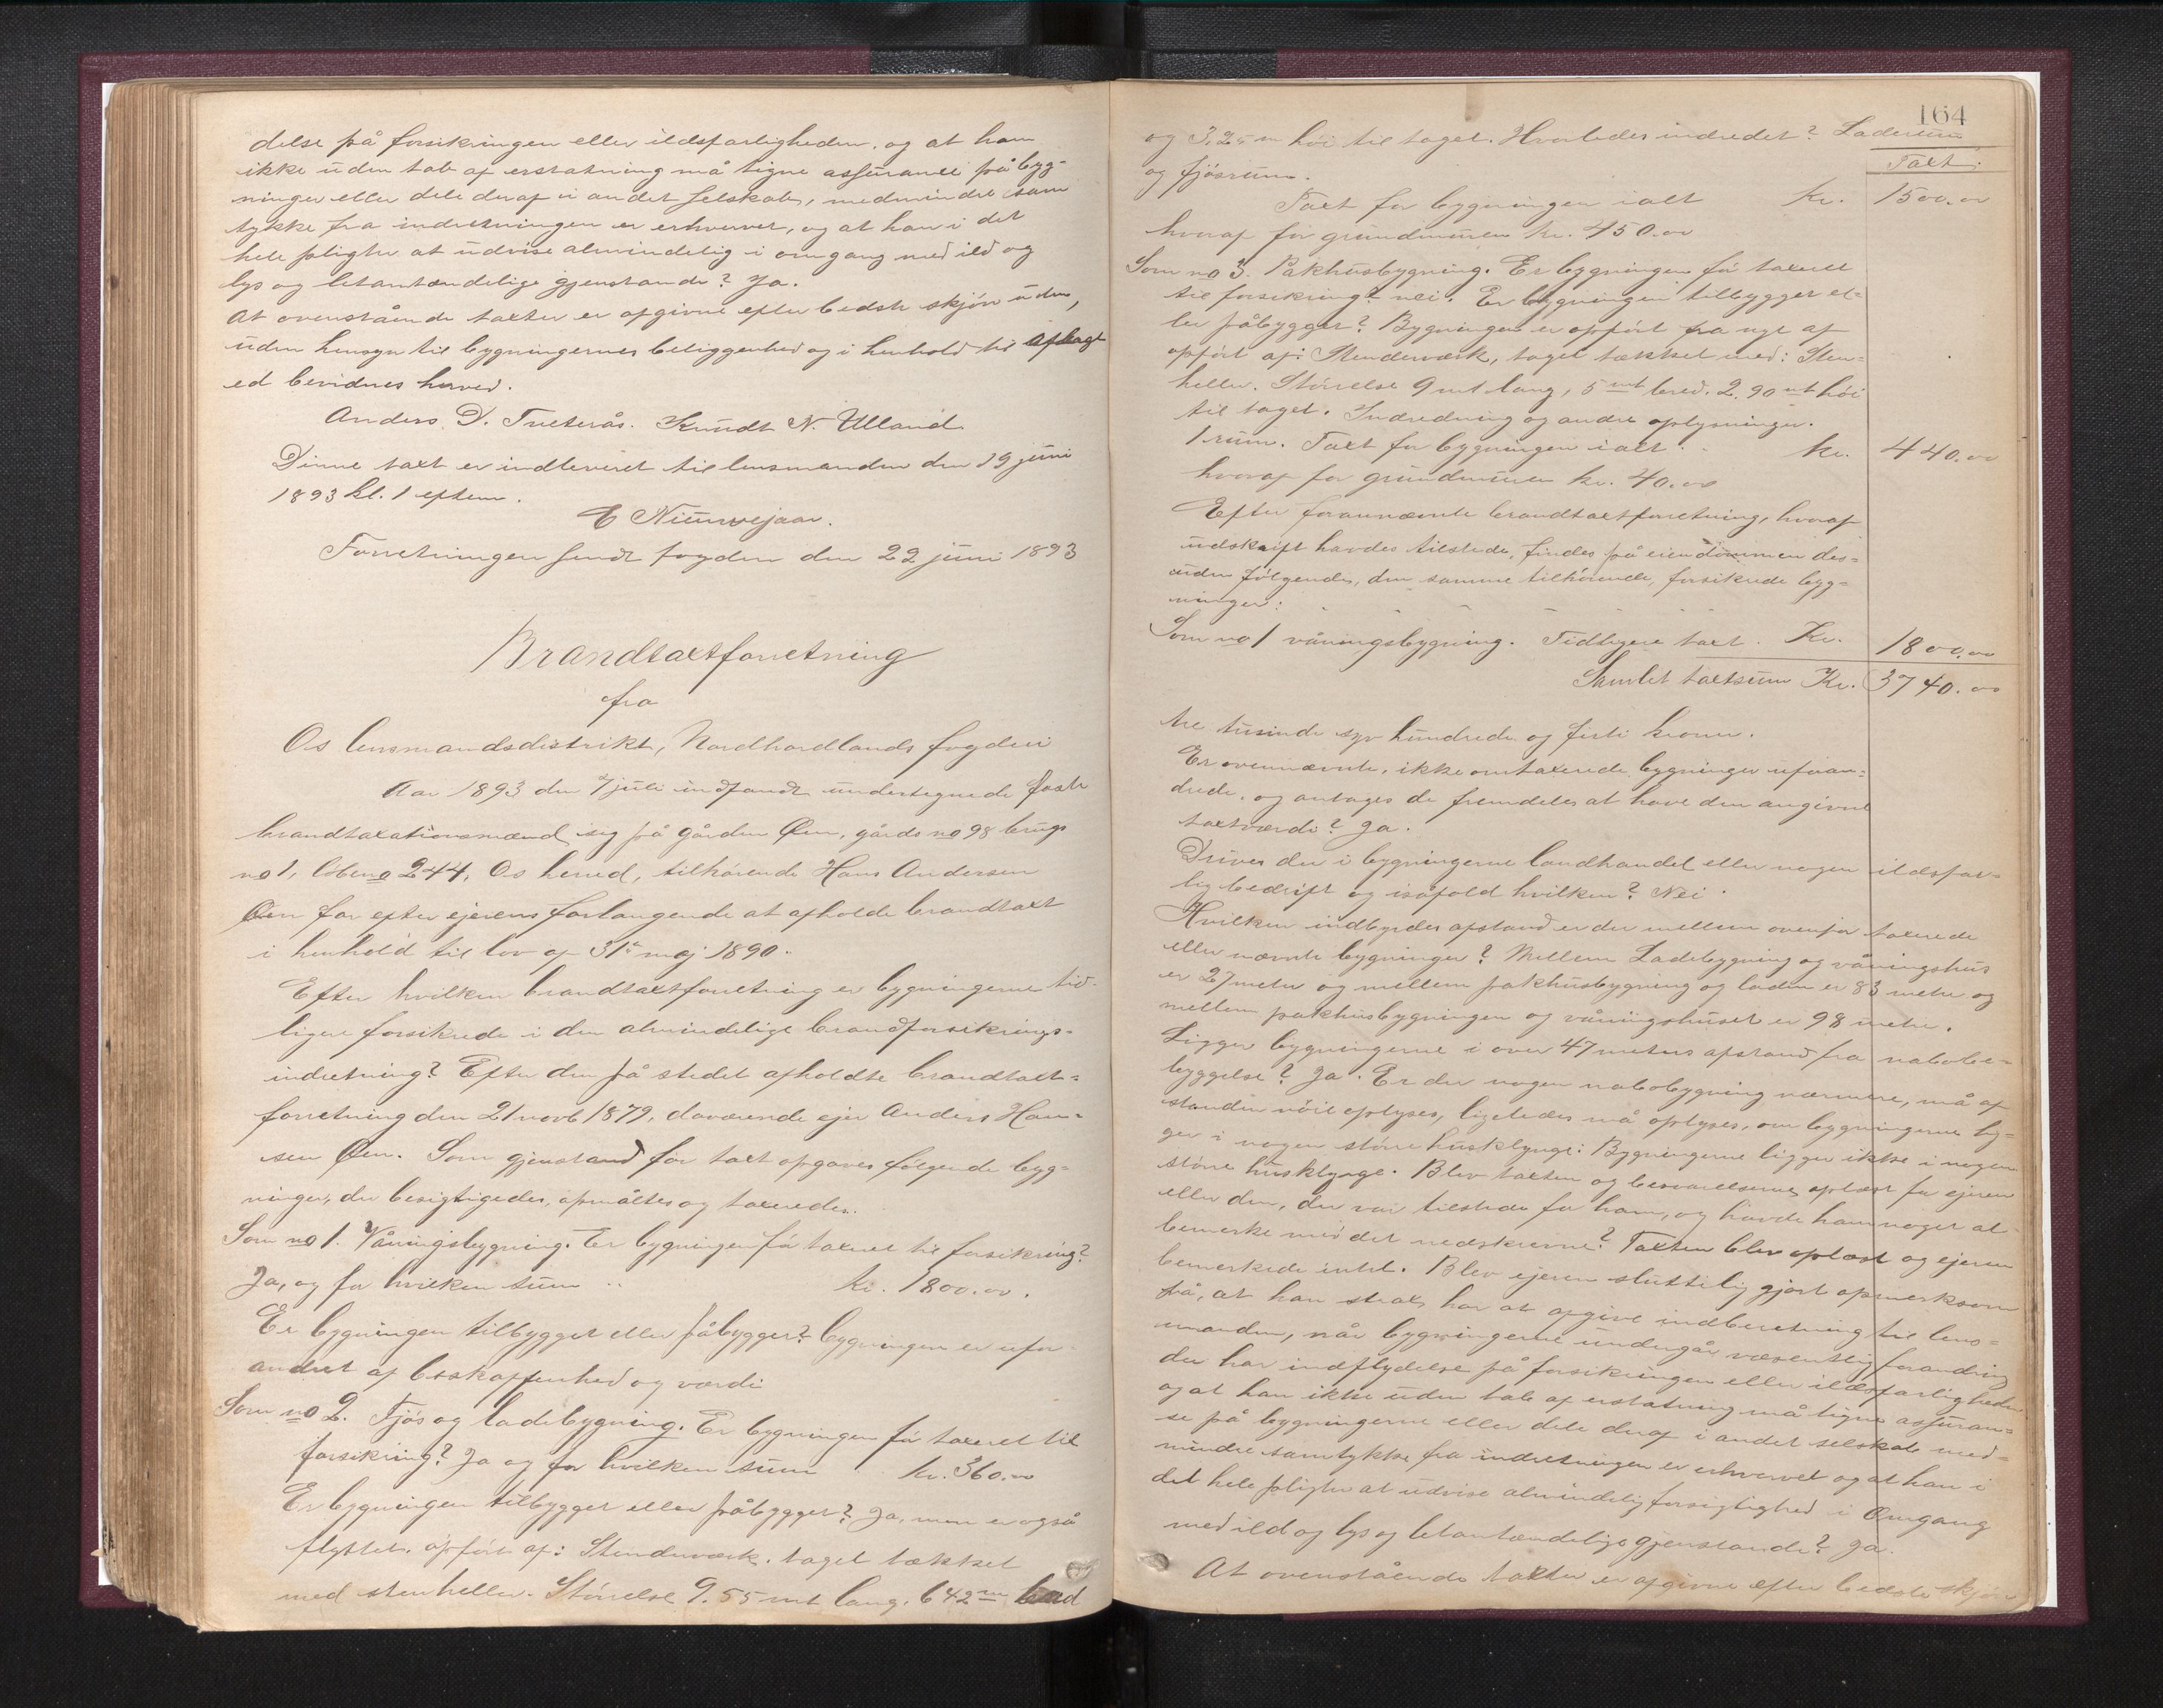 delse på forsikringen eller ildsfarligheden, og at han
ikke uden tab af erstatning må tegne assurance på byg-
ninger eller dele deraf i andet selskab, medmindre sam
tykke fra indretningen er erhvervet, og at han i det
hele pligter at udvise almindelig i omgang med ild og
lys og letantændelige gjenstande? Ja.
At ovenstående taxter er afgivne efter bedste skjøn uden,
uden hensyn til bygningernes beliggenhed og i henhold til aflagt
ed bevidnes herved.
Anders D. Tveterås. Knudt N. Ulland
Denne taxt er indleveret til lensmanden den 19 juni
1893 kl. 1 efterm.
E Nieuwejaar.
Forretningen sendt fogden den 22 juni 1893
Brandtaxtforretning
fra
Os lensmandsdistrikt, Nordhordlands fogderi
Aar 1893 den 7 juli indfandt undertegnede faste
brandtaxationsmænd sig på gården Øen, gårds no 98 brugs
no 1, löbeno 244, Os herred, tilhørende Hans Andersen
Øen for efter ejerens forlangende at afholde brandtaxt
i henhold til lov af 31te maj 1890.
Efter hvilken brandtaxtforretning er bygningerne tid-
ligere forsikrede i den almindelige brandforsikrings-
indretning? Efter den på stedet afholdte brandtaxt-
forretning den 21 novb 1879, daværende ejer Anders Han-
sen Øen. Som gjenstand for taxt opgaves følgende byg-
ninger, der besigtigedes, opmåltes og taxeredes.
Som no 1. Våningsbygning. Er bygningen før taxeret til forsikring?
Ja, og for hvilken sum .. kr. 1800.00.
Er bygningen tilbygget eller påbygget? bygningen er ufor-
andret af beskaffenhed og værdi
Som no 2. Fjös og ladebygning. Er bygningen før taxeret til
forsikring? Ja og for hvilken sum kr. 360.00
Er bygningen tilbygget eller påbygget? Ja, men er også
flyttet. opført af: Stenderværk. taget tækket
med stenheller. Störrelse 9.55 mt lang. 6 42 m bred
164
og 3,25 m höi til taget. Hvorledes indredet? Laderum
og fjösrum.
Taxt.
Taxt for bygningen ialt kr. 1500.00
hvoraf for grundmuren kr. 450.00
Som no 3. Pakhusbygning. Er bygningen før taxeret
til forsikring? nei. Er bygningen tilbygget el-
ler påbygget? Bygningen er opført fra nyt af
opført af: Stenderværk, taget tækket med: Sten-
heller. Störrelse 9 mt lang, 5 mt bred. 2.90 mt höi
til taget. Indredning og andre oplysninger.
1 rum. Taxt for bygningen ialt . kr. 440.00
hvoraf for grundmuren kr. 40.00
Efter forannævnte brandtaxtforretning, hvoraf
udskrift havdes tilstede, findes på eiendommen des-
uden følgende, den samme tilhörende, forsikrede byg-
ninger:
Som no 1 våningsbygning. Tidligere taxt. Kr. 1800.00
Samlet taxtsum Kr. 3740.00
tre tusinde syv hundrede og førti kroner.
Er ovennævnte, ikke omtaxerede bygninger uforan-
drede, og antages de fremdeles at have den angivne
taxtværdi? Ja.
Drives der i bygningerne landhandel eller nogen ildsfar-
lig bedrift og isåfald hvilken? Nei.
Hvilken indbyrdes afstand er der mellem ovenfor taxerede
eller nævnte bygninger? Mellem Ladebygning og våningshus
er 27 meter og mellem pakhusbygning og laden er 83 metre og
mellem pakhusbygningen og våningshuset er 98 metre.
Ligger bygningerne i over 47 meters afstand fra nabobe-
byggelse? Ja. Er der nogen nabobygning nærmere, må af
standen nöie oplyses, ligeledes må oplyses, om bygningerne lig-
ger i nogen större husklynge: Bygningerne ligger ikke i nogen
större husklynge. Blev taxten og besvarelserne oplæst for ejeren
eller den, der var tilstede for ham, og havde han noget at
bemerke mod det nedskrevne? Taxten blev oplæst og ejeren
bemerkede intet. Blev ejeren sluttelig gjort opmerksom
på, at han straks har at afgive indberetning til lens-
manden, når bygningerne undergår væsentlig forandring
der har indflydelse på forsikringen eller ildsfarligheden
og at han ikke uden tab af erstatning må tegne assuran-
se på bygningerne eller dele deraf i andet selskab med-
mindre samtykke fra indretningen er erhvervet og at han i
det hele pligter at udvise almindelig forsigtighed i Omgang
med ild og lys og letantændelige gjenstande? Ja.
At ovenstående taxter er afgivne efter bedste skjøn